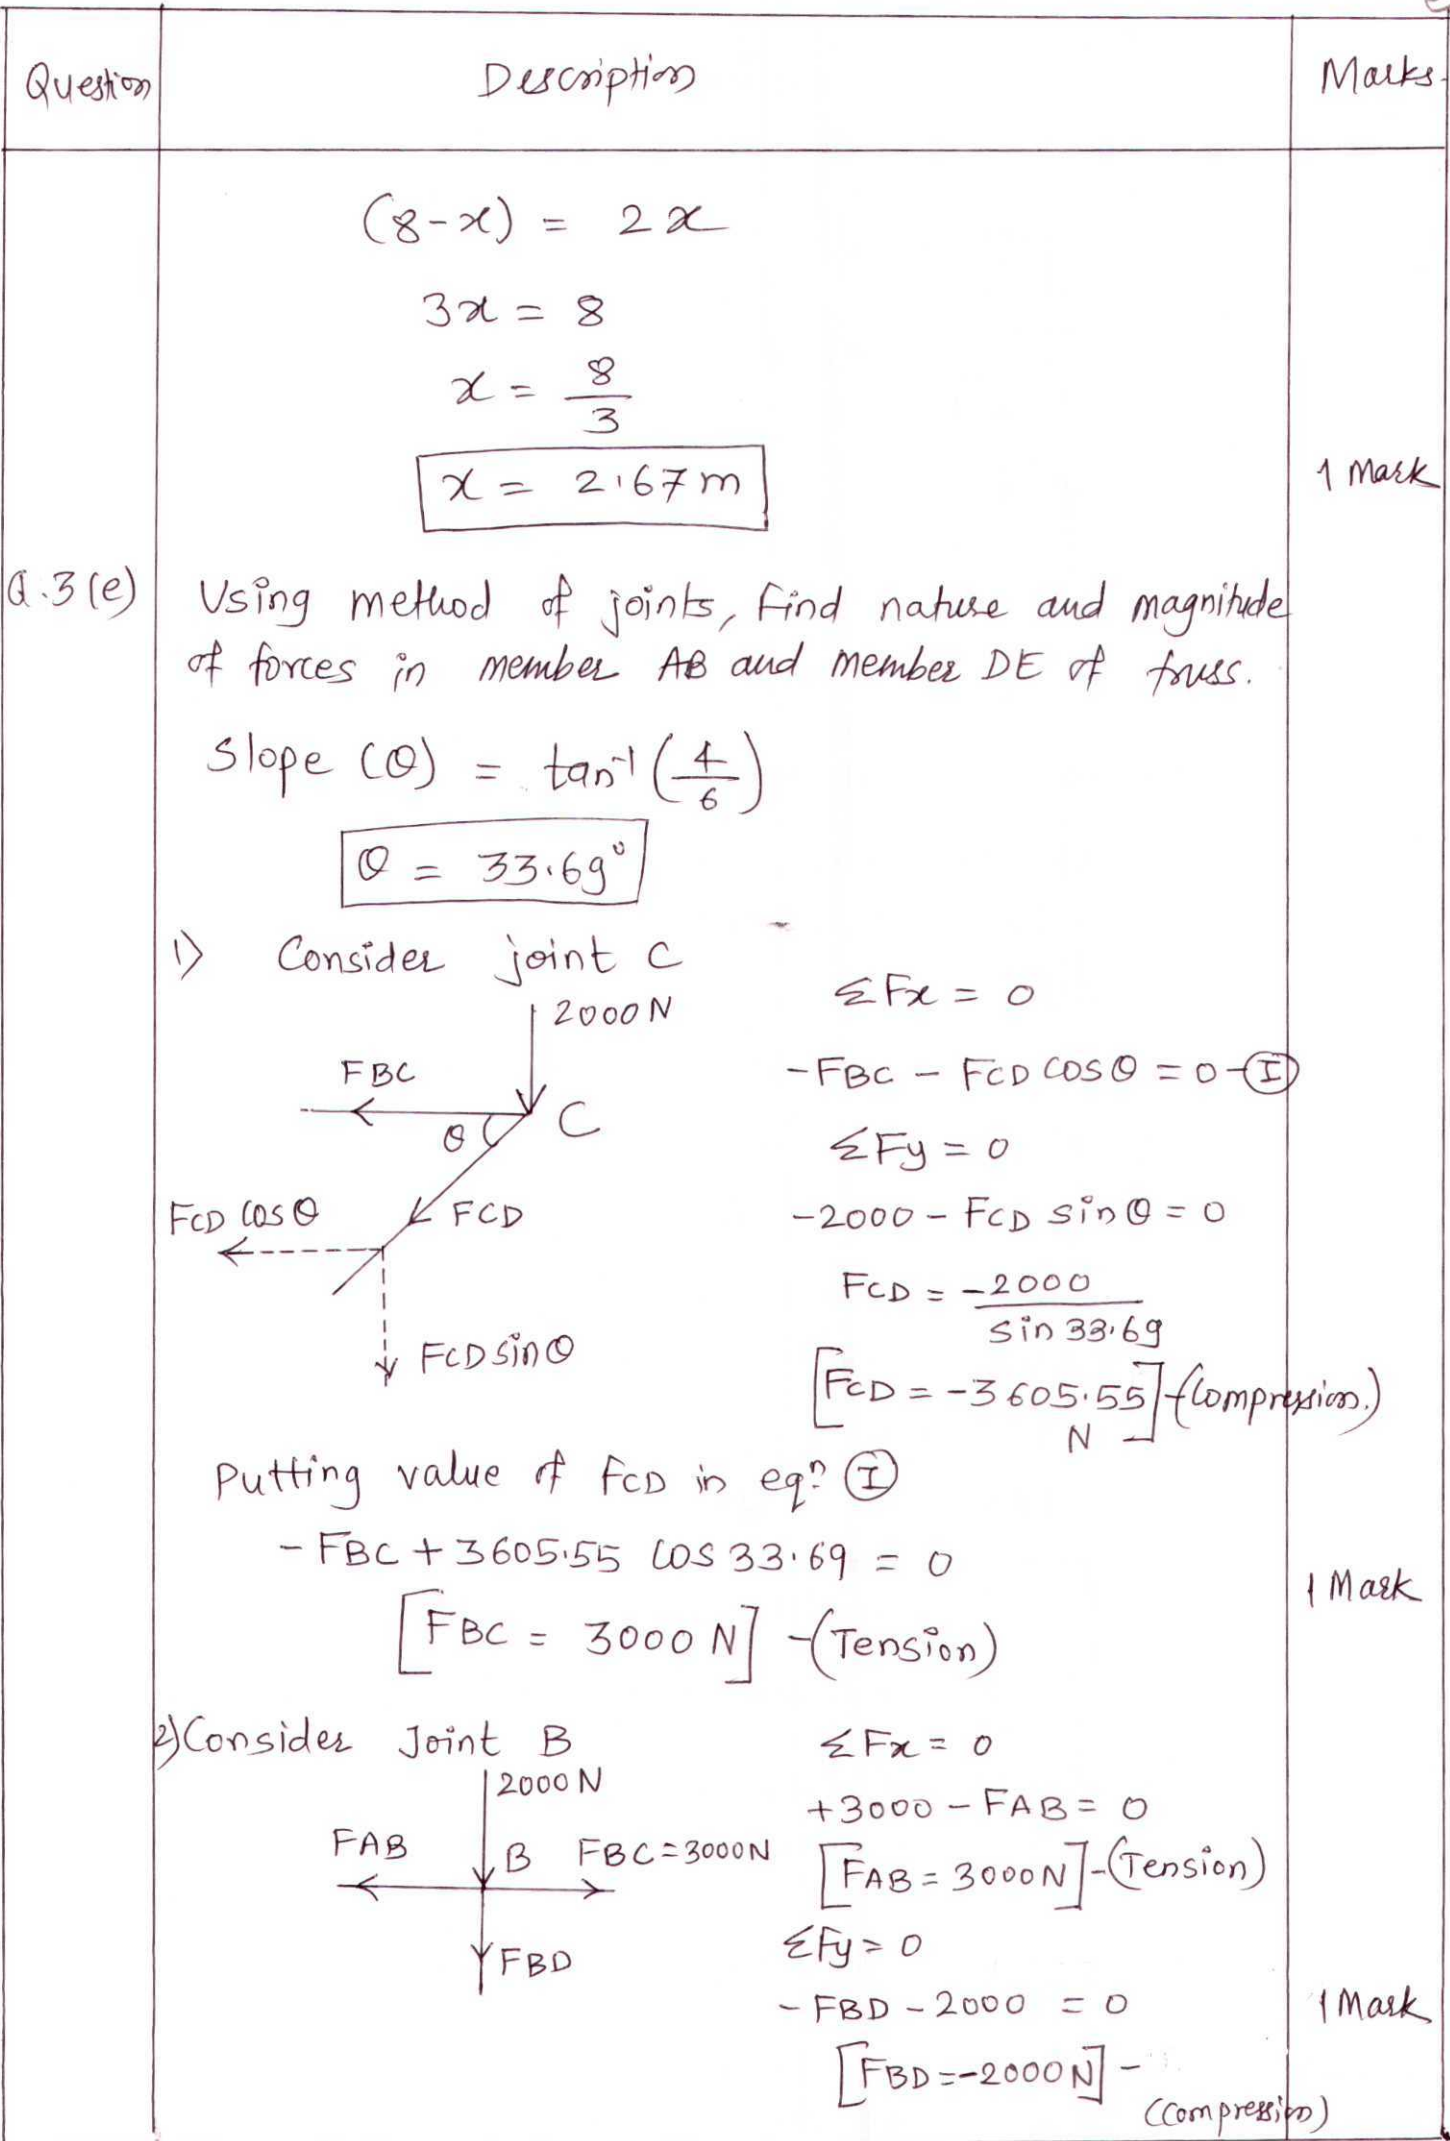 Question Description Marks
(8-x) = 2x
3x = 8
x = 8/3
x = 2.67m
1 Mark
Q.3(e) Using method of joints, find nature and magnitude
of forces in member AB and member DE of truss.
Slope (θ) = tan⁻¹(4/6)
θ = 33.69°
1) Consider joint C
2000N
FBC
θ
C
FCD cosθ
FCD
FCD sinθ
ΣFx = 0
-FBC - FCD cosθ = 0 - I
ΣFy = 0
-2000 - FCD sinθ = 0
FCD = -2000/sin 33.69
[FCD = -3605.55 N] - (Compression.)
Putting value of FCD in eqⁿ I
- FBC + 3605.55 cos 33.69 = 0
1 Mark
[FBC = 3000 N] - (Tension)
2) Consider Joint B
2000N
FAB
B
FBC = 3000N
FBD
ΣFx = 0
+3000 - FAB = 0
[FAB = 3000N] - (Tension)
ΣFy = 0
- FBD - 2000 = 0
1 Mark
[FBD = -2000N] -
(Compression)